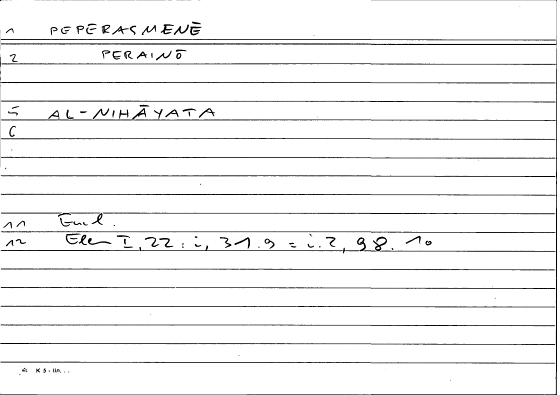 1 PEPERASMENĒ
2 PERAINŌ
5 AL-NIHĀYATA
6
11 Eucl.
12 Elem I, 22 : i, 31.9 = i.2, 98.10